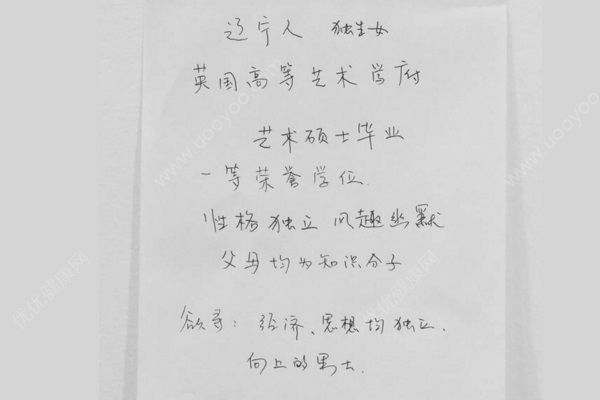 辽宁人 独生女
英国高等艺术学府
艺术硕士毕业
一等荣誉学位.
性格独立 风趣幽默
父母均为知识分子
欲寻: 经济、思想均独立.
向上的男士.
www.uooyoo.com
优优健康网